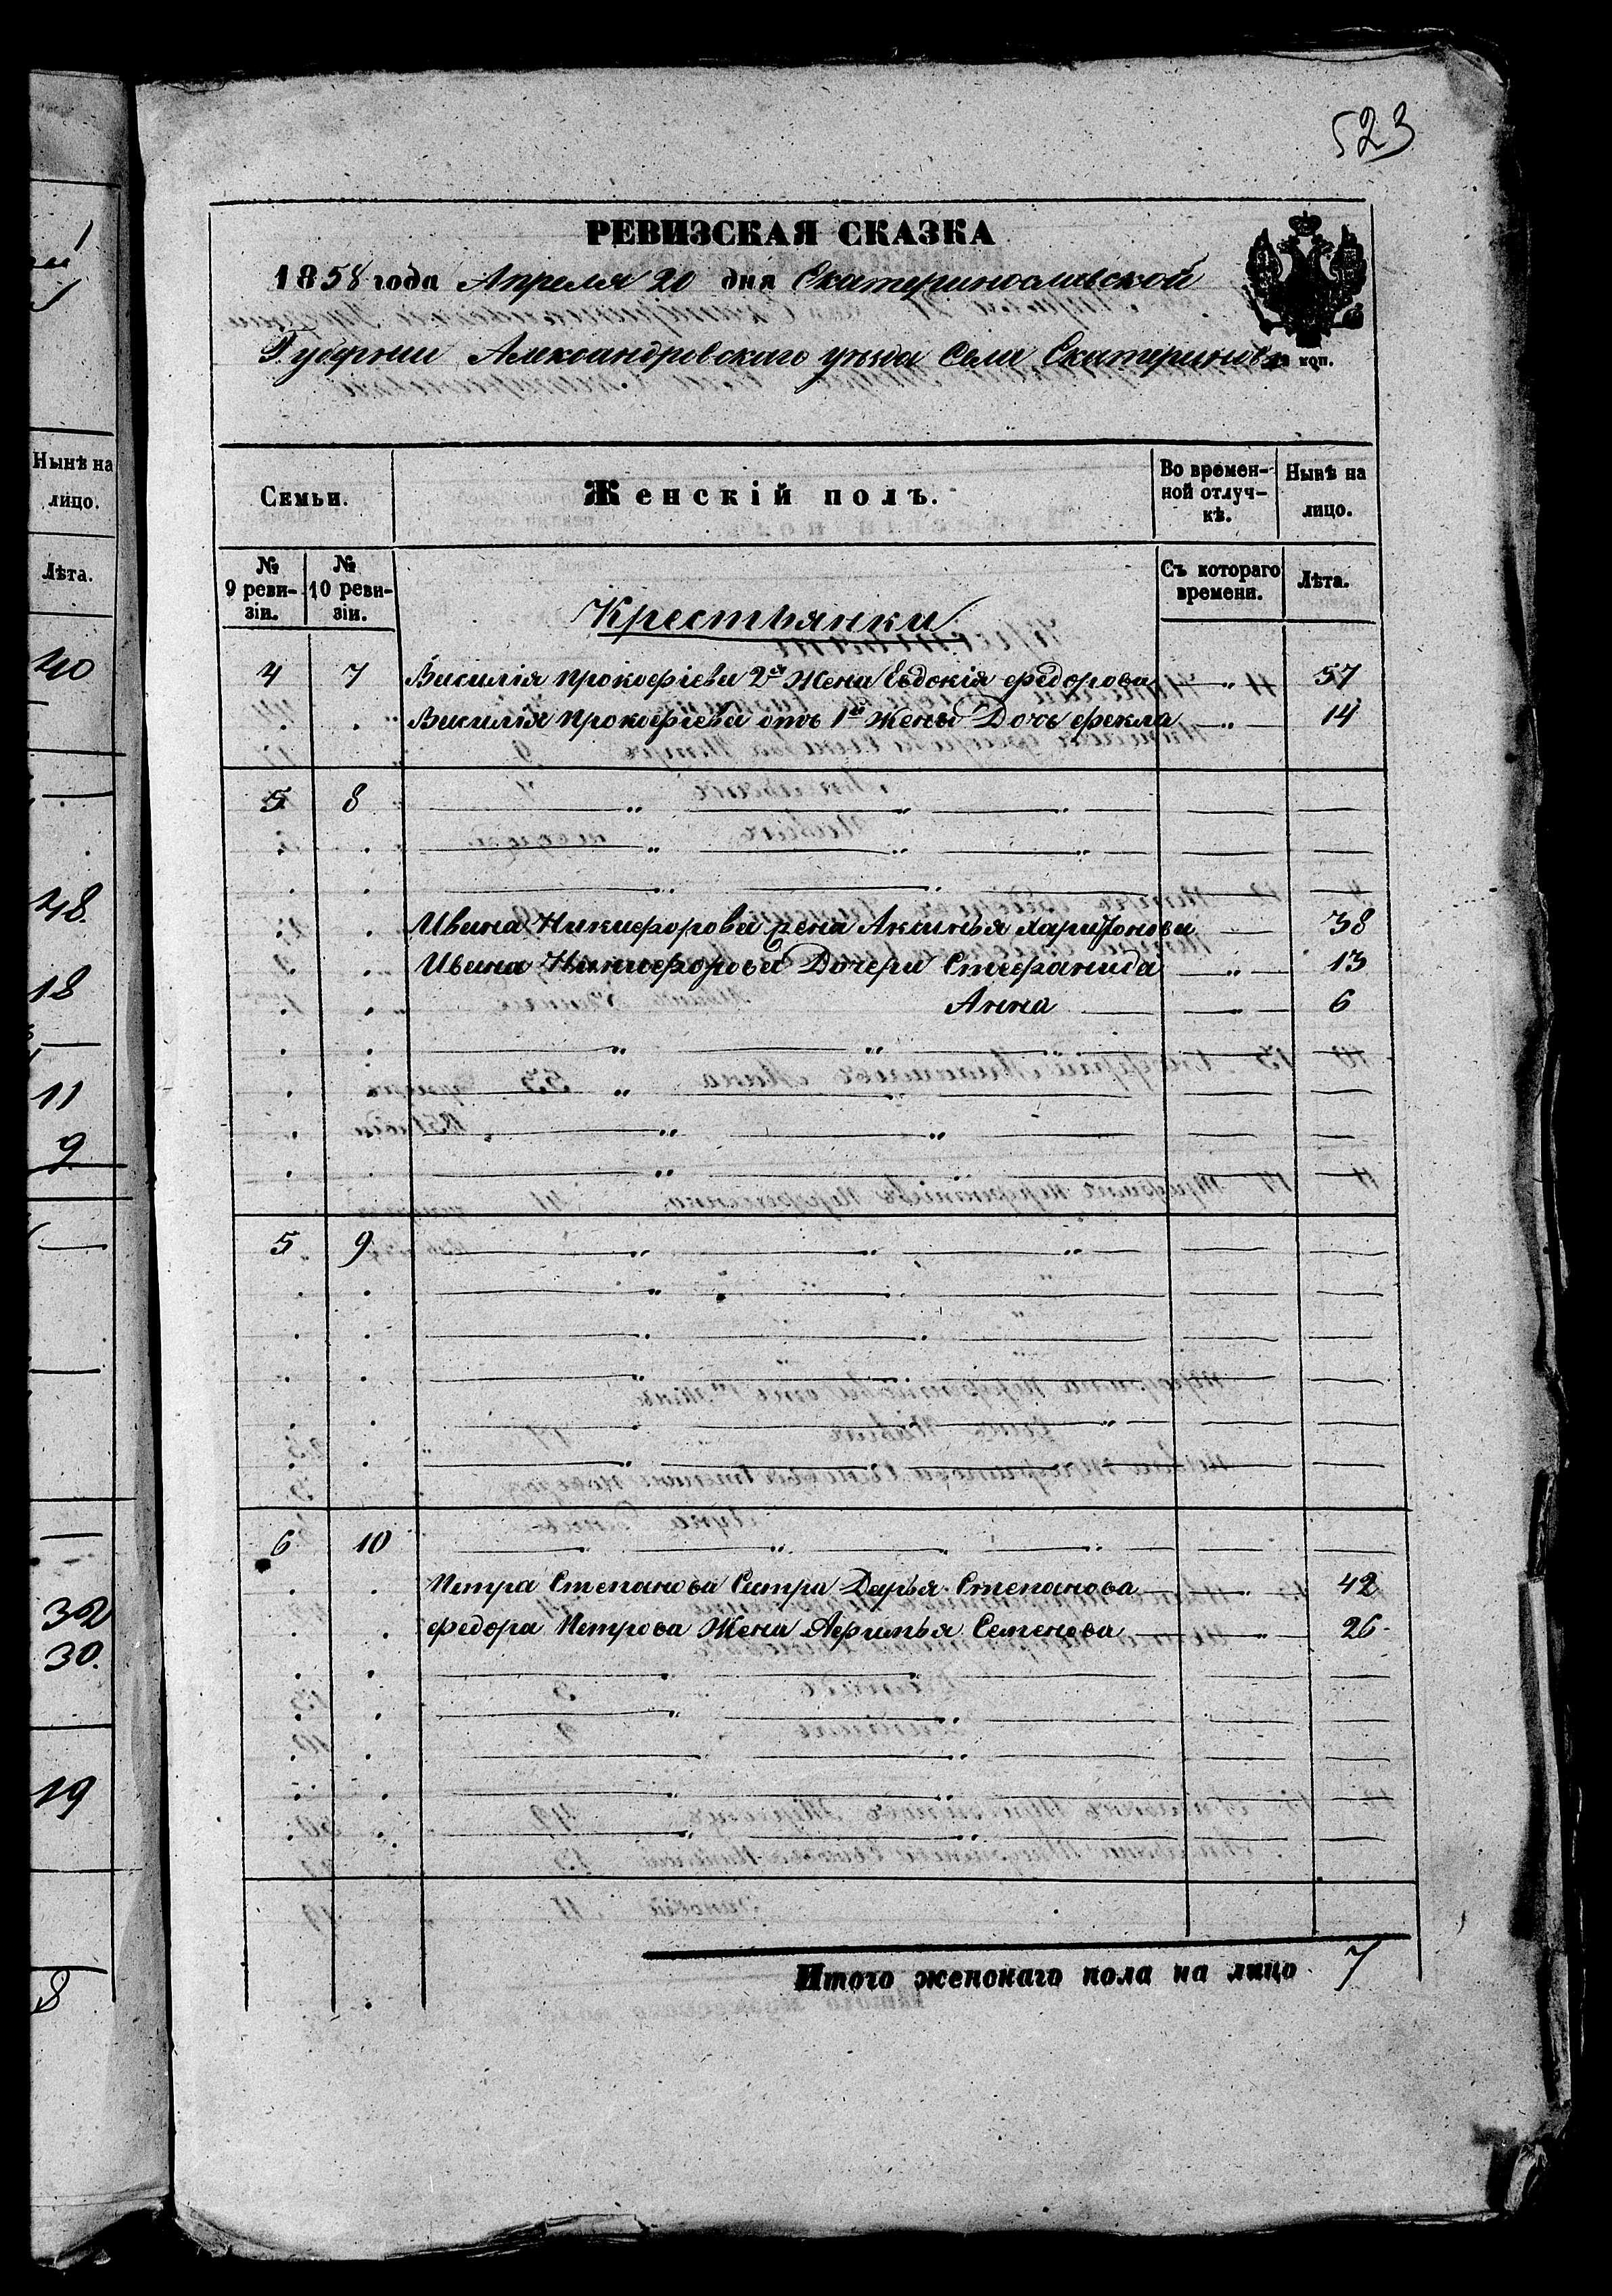 523
РЕВИЗСКАЯ СКАЗКА
1858 года Апреля 20 дня Екатеринославской
Губернии Александровскаго уѣзда Села Екатериновк
коп.
Семьи.
Женскій полъ.
Во временной отлучкѣ.
Нынѣ на лицо.
№ 9 ревизіи.
№ 10 ревизіи.
Съ котораго времени.
Лѣта.
Крестьянки
4 7 Василія Прокофіева 2я Жена Евдокія Федорова — „ — 57
. . Василія Прокофіева отъ 1й жены Дочь Фекла — „ — 14
5 8
Ивана Никифорова жена Аксинья Харитонова — „ — 38
Ивана Никифорова Дочери Стефанида — „ — 13
Анна — „ — 6
5 9
6 10
Петра Степанова Систра Дарья Степанова — „ — 42
Федора Петрова Жена Афимья Семенова — „ — 26
Итого женскаго пола на лицо 7
Нынѣ на
лицо.
Лѣта.
40
48
18
11
9
32
30.
19
8